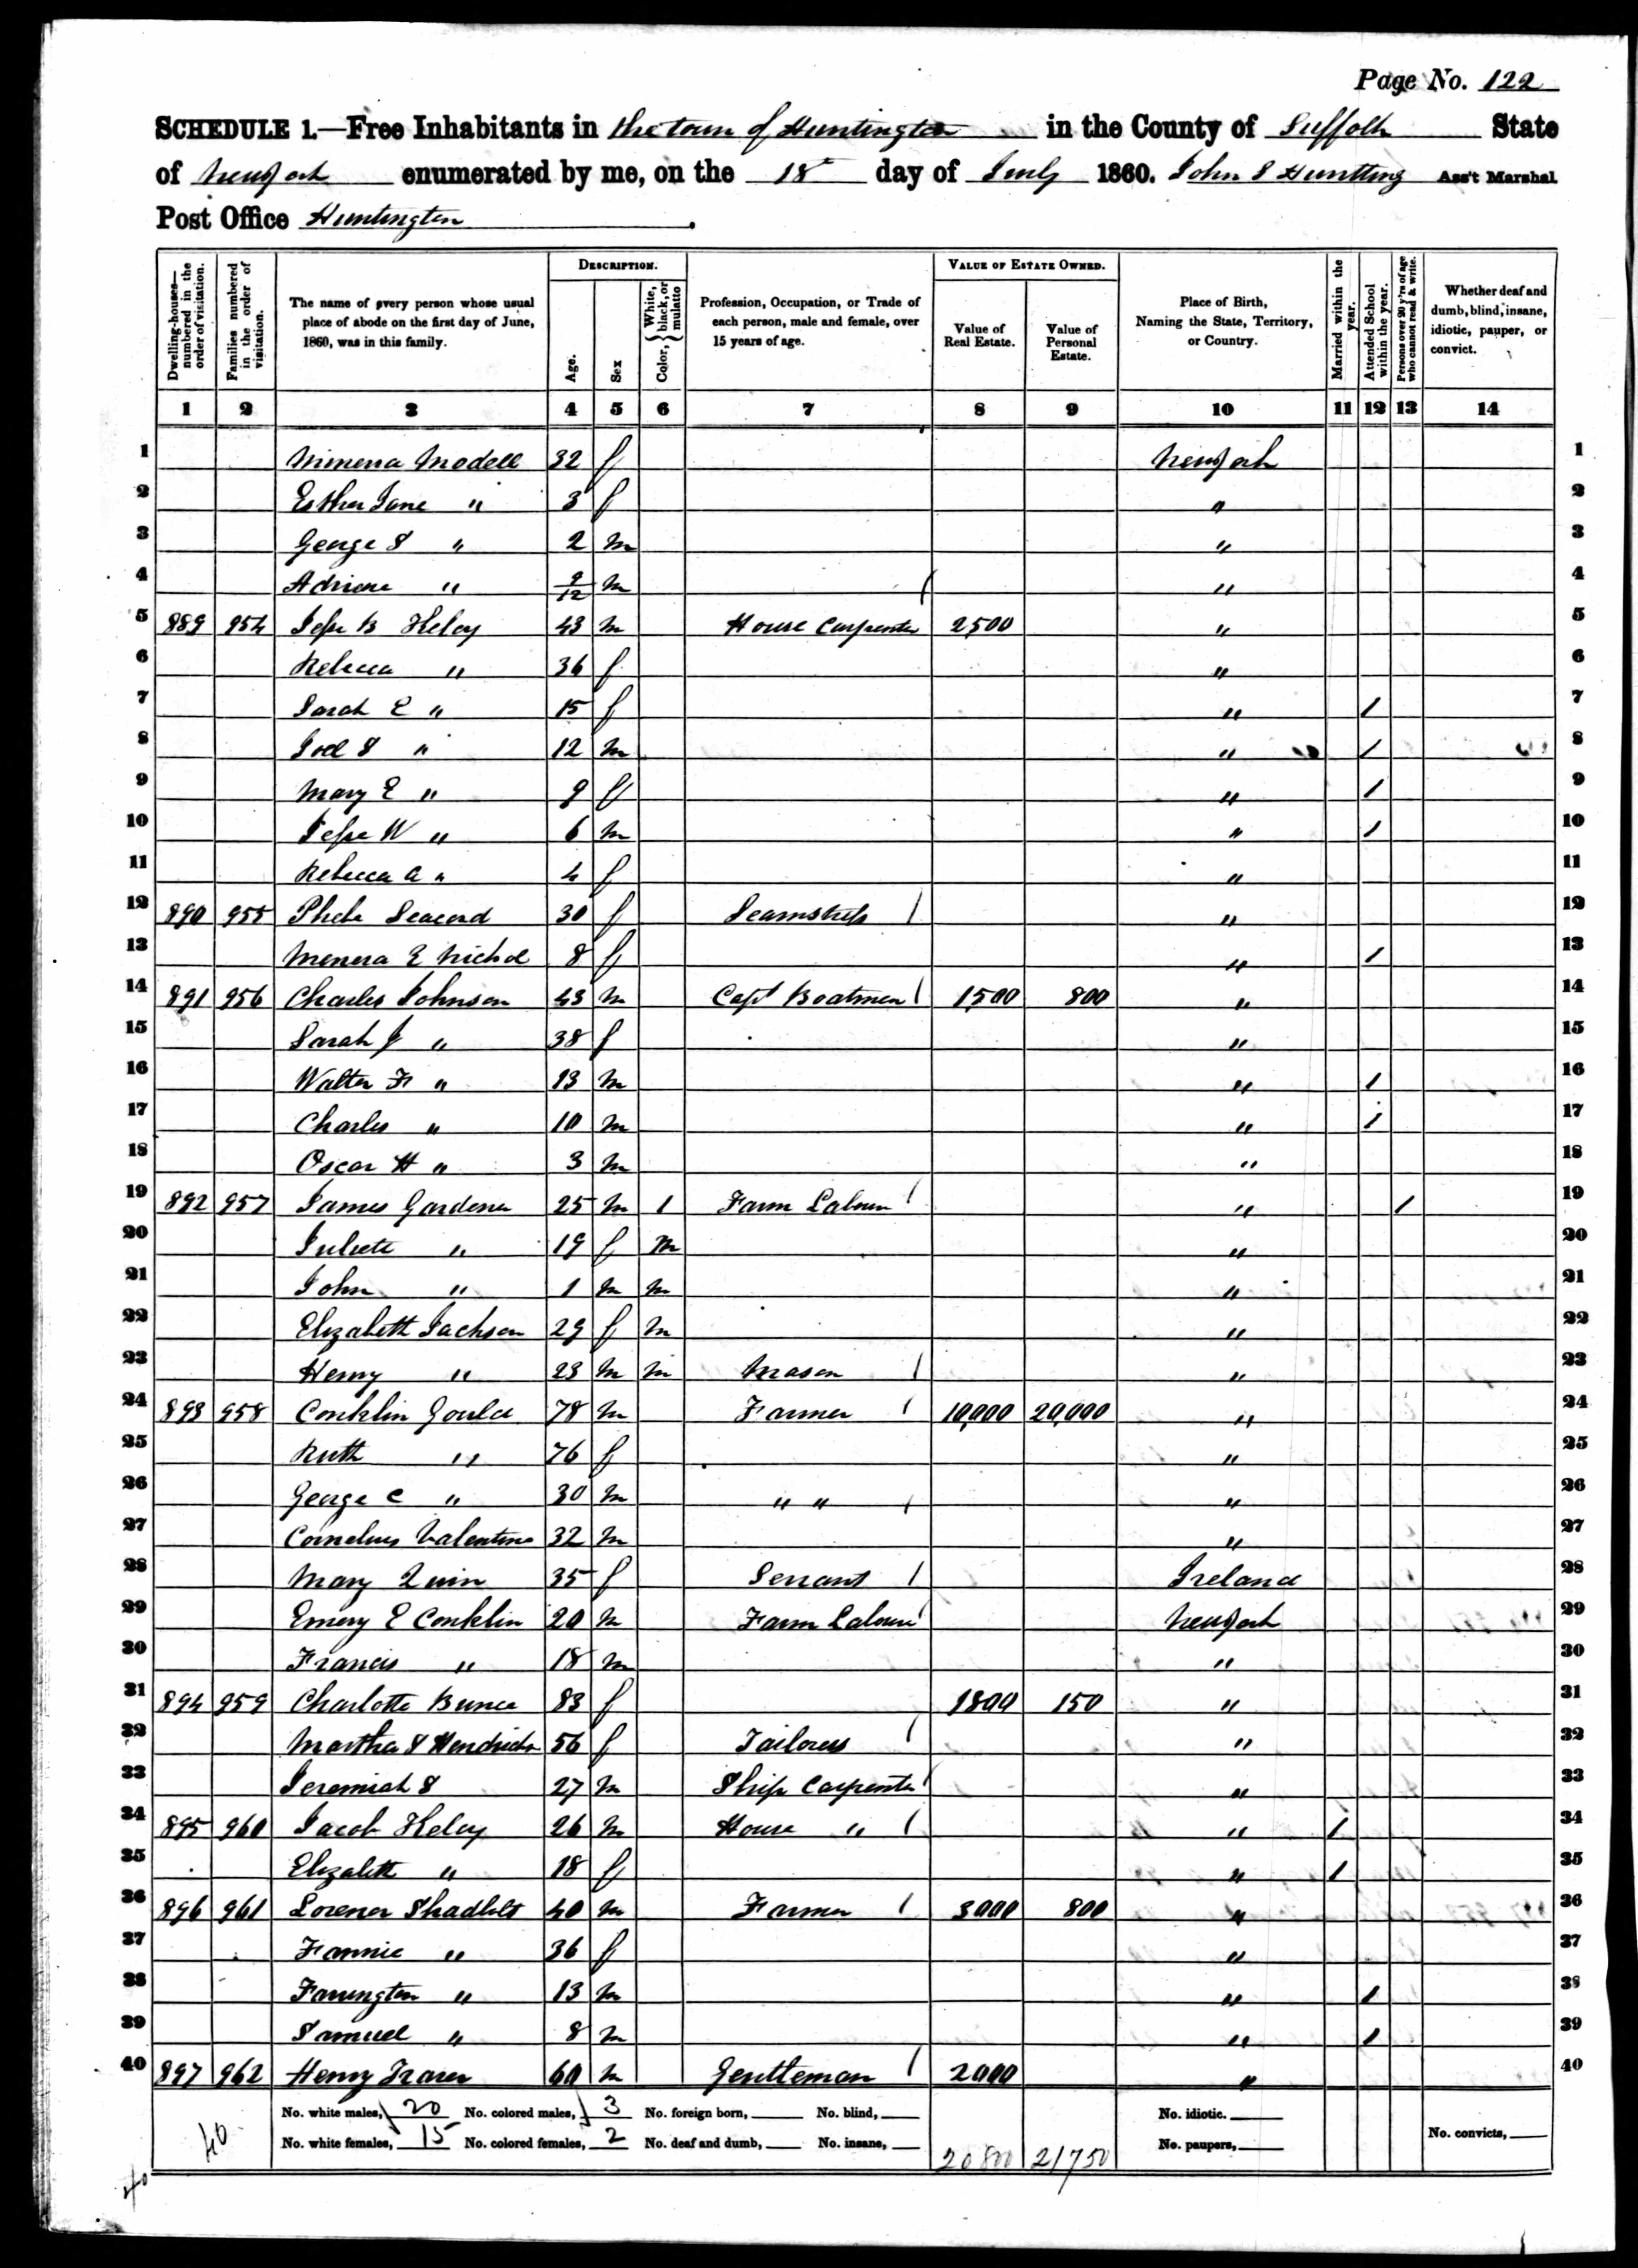 Page No. 122
SCHEDULE 1.—Free Inhabitants in the town of Huntington in the County of Suffolk State
of New York enumerated by me, on the 18th day of July 1860. John S Huntting Ass't Marshal
Post Office Huntington.
Dwelling-houses—numbered in the order of visitation.
Families numbered in the order of visitation.
The name of every person whose usual place of abode on the first day of June, 1860, was in this family.
DESCRIPTION.
Age.
Sex
Color, { White, black, or mulatto
Profession, Occupation, or Trade of each person, male and female, over 15 years of age.
VALUE OF ESTATE OWNED.
Value of Real Estate.
Value of Personal Estate.
Place of Birth, Naming the State, Territory, or Country.
Married within the year.
Attended School within the year.
Persons over 20 y'rs of age who cannot read & write.
Whether deaf and dumb, blind, insane, idiotic, pauper, or convict.
1 2 3 4 5 6 7 8 9 10 11 12 13 14
1 Modell 32 f New York 1
2 Esther Jane " 3 f " 2
3 George S " 2 m " 3
4 " 9/12 m " 4
5 889 954 Jesse B 43 m House Carpenter 2500 " 5
6 Rebecca " 36 f " 6
7 Sarah E " 15 f " / 7
8 Joel S " 12 m " / 8
9 Mary E " 9 f " / 9
10 Jesse W " 6 m " / 10
11 Rebecca A " 4 f " 11
12 890 955 Phebe Seacord 30 f Seamstress / " 12
13 E Nichol 8 f " / 13
14 891 956 Charles Johnson 43 m Capt Boatmen / 1500 800 " 14
15 Sarah J " 38 f " 15
16 Walter F " 13 m " / 16
17 Charles " 10 m " / 17
18 Oscar H " 3 m " 18
19 892 957 James Gardener 25 m 1 Farm Labour / " / 19
20 Juliete " 19 f m " 20
21 John " 1 m m " 21
22 Elizabeth Jackson 29 f m " 22
23 Henry " 23 m m Mason / " 23
24 893 958 Conklin Gould 78 m Farmer / 10,000 20,000 " 24
25 Ruth " 76 f " 25
26 George C " 30 m " " / " 26
27 Cornelius Valentine 32 m " 27
28 Mary Quin 35 f Servant / Ireland 28
29 Emery E Conklin 20 m Farm Labour / New York 29
30 Francis " 18 m " 30
31 894 959 Charlotte Bunce 83 f 1800 150 " 31
32 Martha S 56 f Tailoress / " 32
33 Jeremiah S 27 m Ship Carpenter / " 33
34 895 960 Jacob 26 m House " / " / 34
35 Elizabeth " 18 f " / 35
36 896 961 Shadbolt 40 m Farmer / 3000 800 " 36
37 Fannie " 36 f " 37
38 Farrington " 13 m " / 38
39 Samuel " 8 m " / 39
40 897 962 Henry 60 m Gentleman / 2000 " 40
40 No. white males, 20 No. colored males, 3 No. foreign born, No. blind, No. idiotic.
No. white females, 15 No. colored females, 2 No. deaf and dumb, No. insane, 20800 21750 No. paupers, No. convicts,